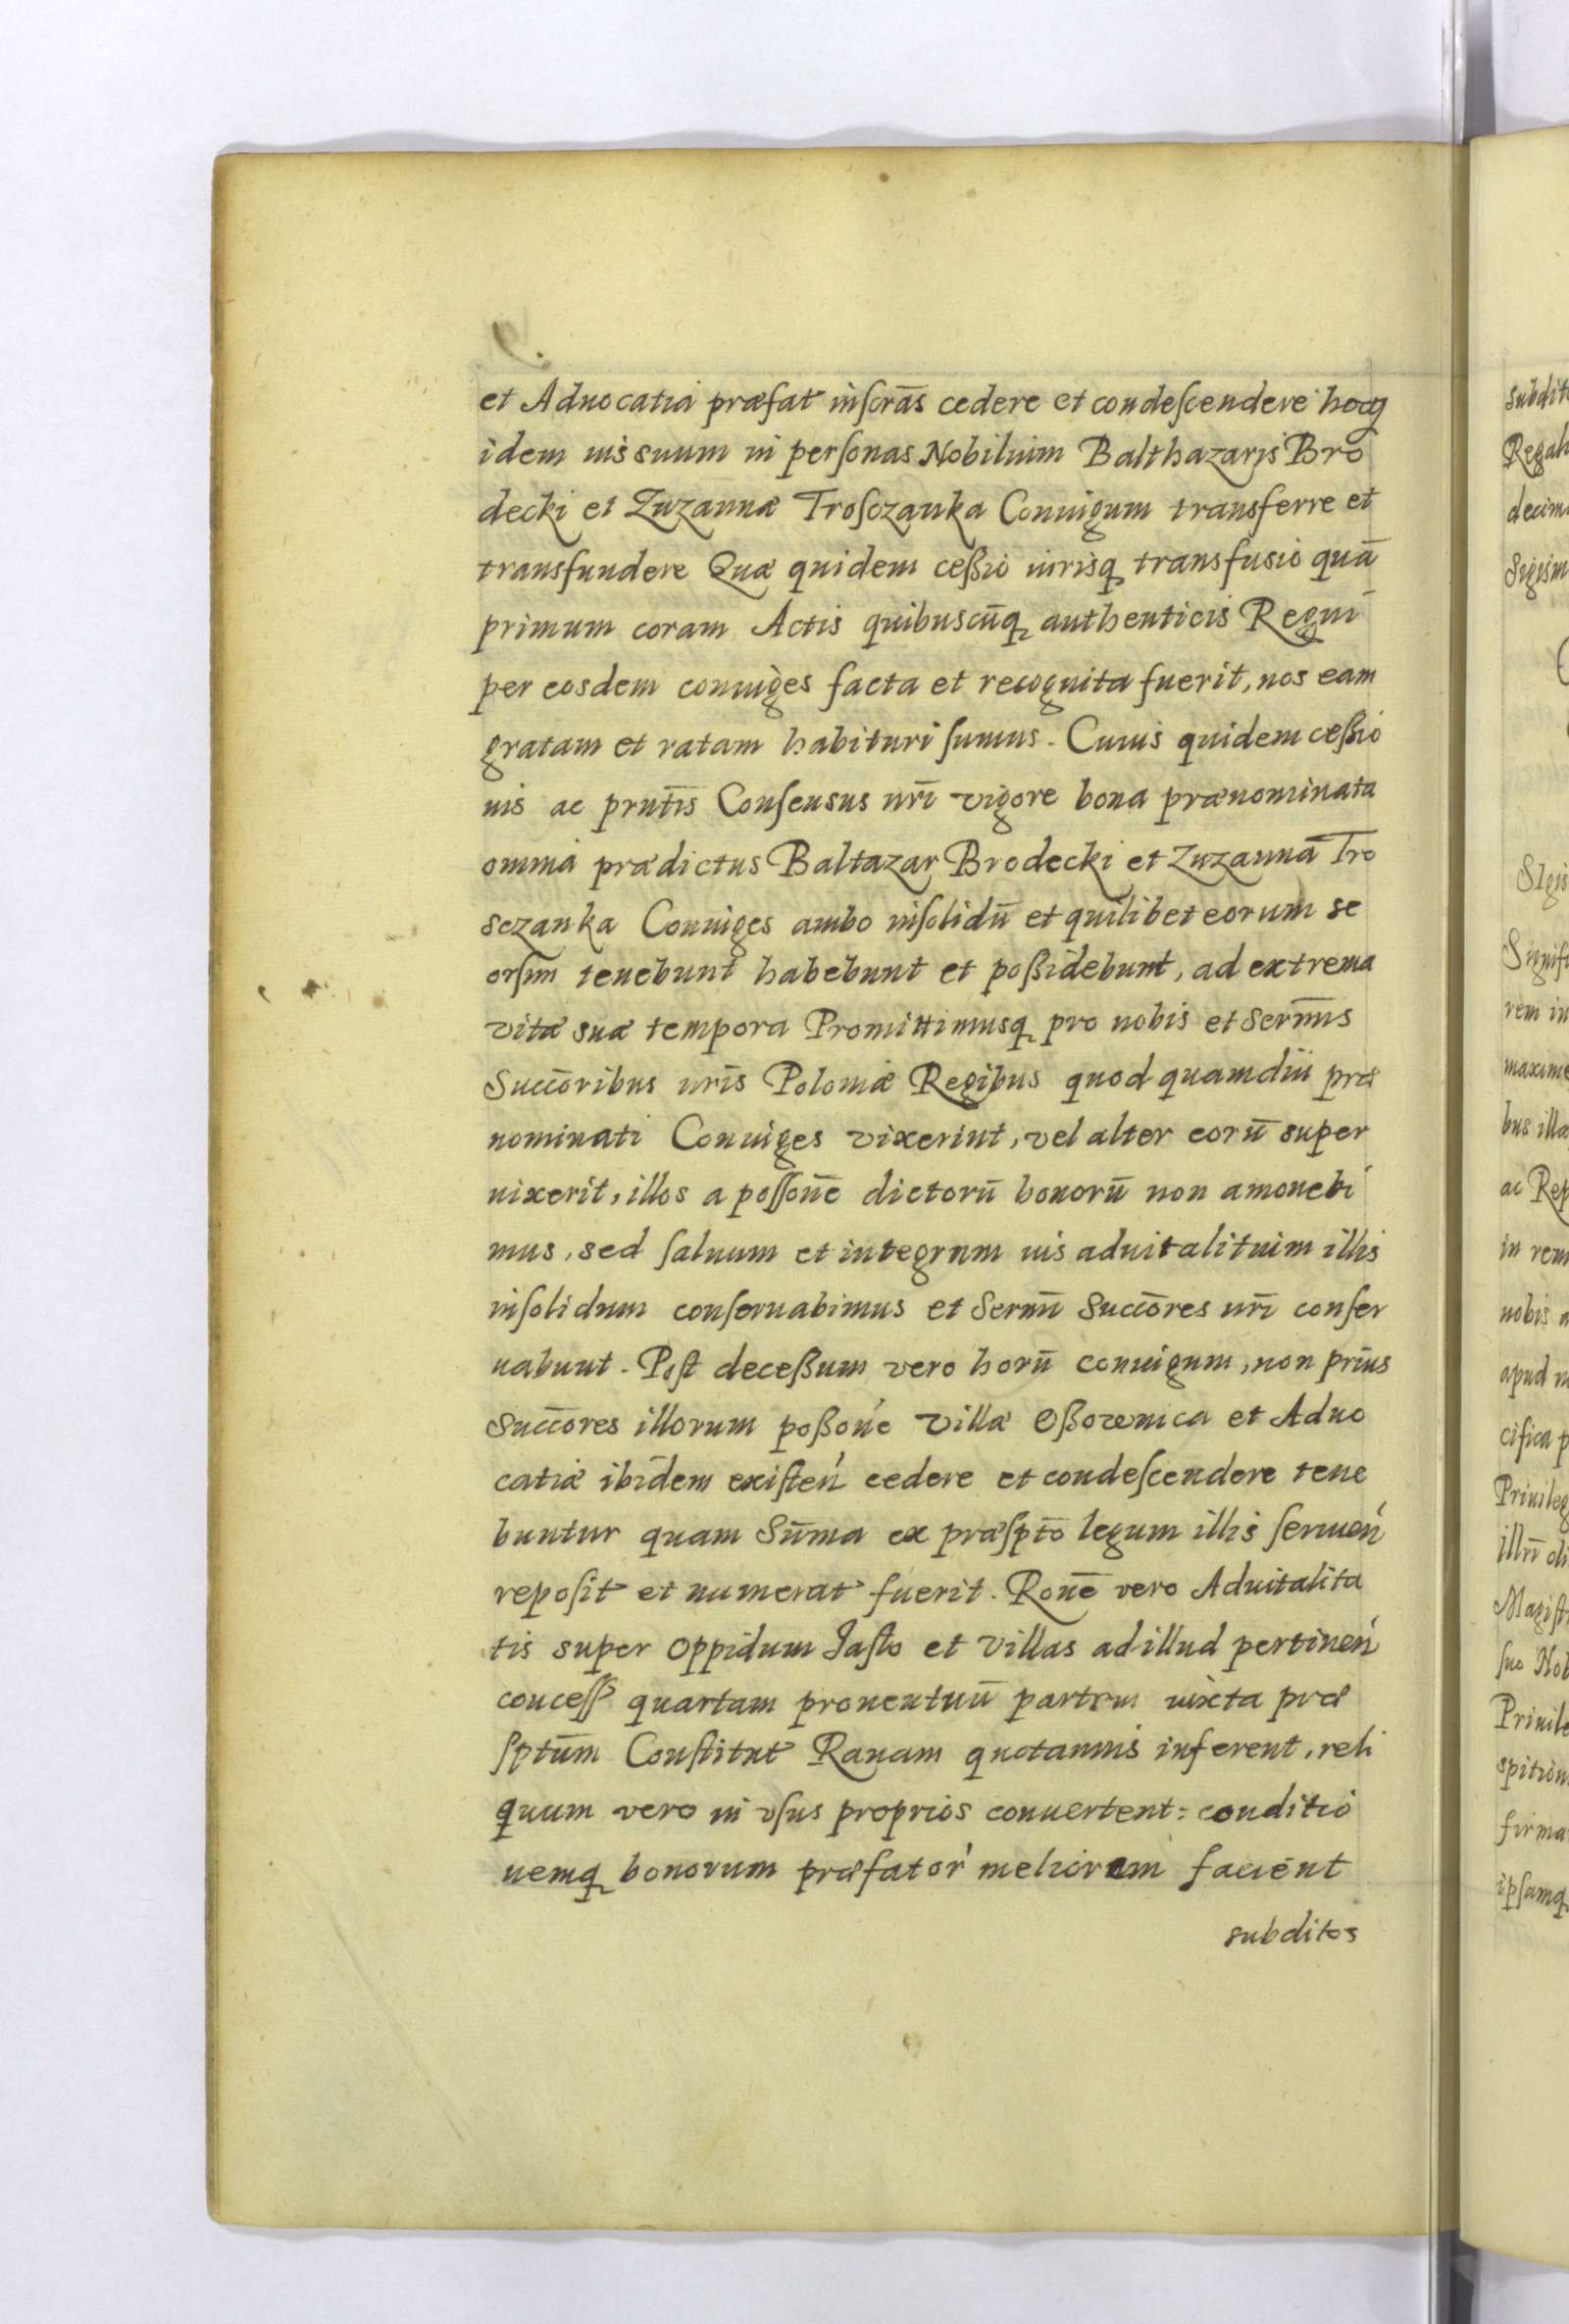 et Aduocatia præfat inſcrās cedere et condeſcendere hocq
idem ius suum in perſonas Nobilium Balthazaris Bro
decki et Zuzannæ Troſczanka Coniugum transferre et
transfundere Quæ quidem ceßio iurisq transfusio quā
primum coram Actis quibuscūq authenticis Regni
per eosdem coniuges facta et recognita fuerit, nos eam
gratam et ratam habituri ſumus. Cuius quidem ceßio
nis ac prntīs Conſensus nrī vigore bona prænominata
omnia prædictus Baltazar Brodecki et Zuzanna Tro
sczanka Coniuges ambo inſolidū et quilibet eorum se
orſim tenebunt habebunt et poßidebunt, ad extrema
vitæ suæ tempora Promittimusq pro nobis et Serm̄is
Succōribus nrīs Poloniæ Regibus quod quamdiu præ
nominati Coniuges vixerint, vel alter eorū super
uixerit, illos a poſſonē dictorū bonorū non amouebi
mus, sed ſaluum et integrum ius aduitalituim illis
inſolidum conſeruabimus et Serm̄i Succōres nrī conſer
uabunt. Poſt deceßum vero horū coniugum, non prīus
Succōres illorum poßone villa Oßownica et Aduo
catiæ ibīdem exiſteń cedere et condeſcendere tene
buntur quam Sūma ex præſptō legum illis ſerueń
repoſit et numerat fuerit. Ronē vero Aduitalita
tis super oppidum Jaſlo et villas ad illud pertineń
conceſſ quartam prouentuū partem iuxta præ
ſptūm Conſtitut Rauam quotannis inferent, reli
quum vero in vſus proprios conuertent: conditio
nemq bonorum præfator meliorem facient
subditos